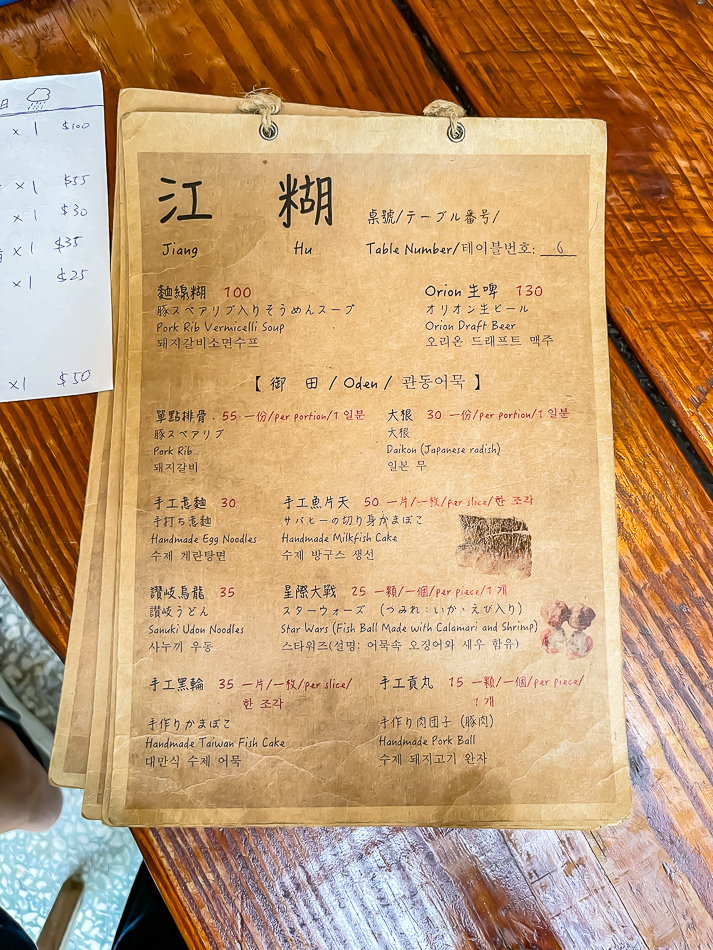 日
x 1 $100
x 1 $55
x 1 $30
x 1 $35
x 1 $25
x1 $50
江 糊
桌號/テーブル番号/
Jiang Hu
Table Number/테이블번호: 6
麵線糊 100
豚スペアリブ入りそうめんスープ
Pork Rib Vermicelli Soup
돼지갈비소면수프
Orion 生啤 130
オリオン生ビール
Orion Draft Beer
오리온 드래프트 맥주
【 御 田 / Oden / 관동어묵 】
單點排骨. 55 一份/per portion/1 일분
豚スペアリブ
Pork Rib
돼지갈비
大根 30 一份/per portion/1 일분
大根
Daikon (Japanese radish)
일본 무
手工意麵 30
手打ち意麵
Handmade Egg Noodles
수제 계란탕면
手工魚片天 50 一片/一枚/per slice/한 조각
サバヒーの切り身かまぼこ
Handmade Milkfish Cake
수제 방구스 생선
讚岐烏龍 35
讚岐うどん
Sanuki Udon Noodles
사누끼 우동
星際大戰 25 一顆/一個/per piece/1 개
スターウォーズ (つみれ：いか、えび入り)
Star Wars (Fish Ball Made with Calamari and Shrimp)
스타워즈(설명: 어묵속 오징어와 새우 함유)
手工黑輪 35 一片/一枚/per slice/
한 조각
手作りかまぼこ
Handmade Taiwan Fish Cake
대만식 수제 어묵
手工貢丸 15 一顆/一個/per piece/
1 개
手作り肉団子 (豚肉)
Handmade Pork Ball
수제 돼지고기 완자